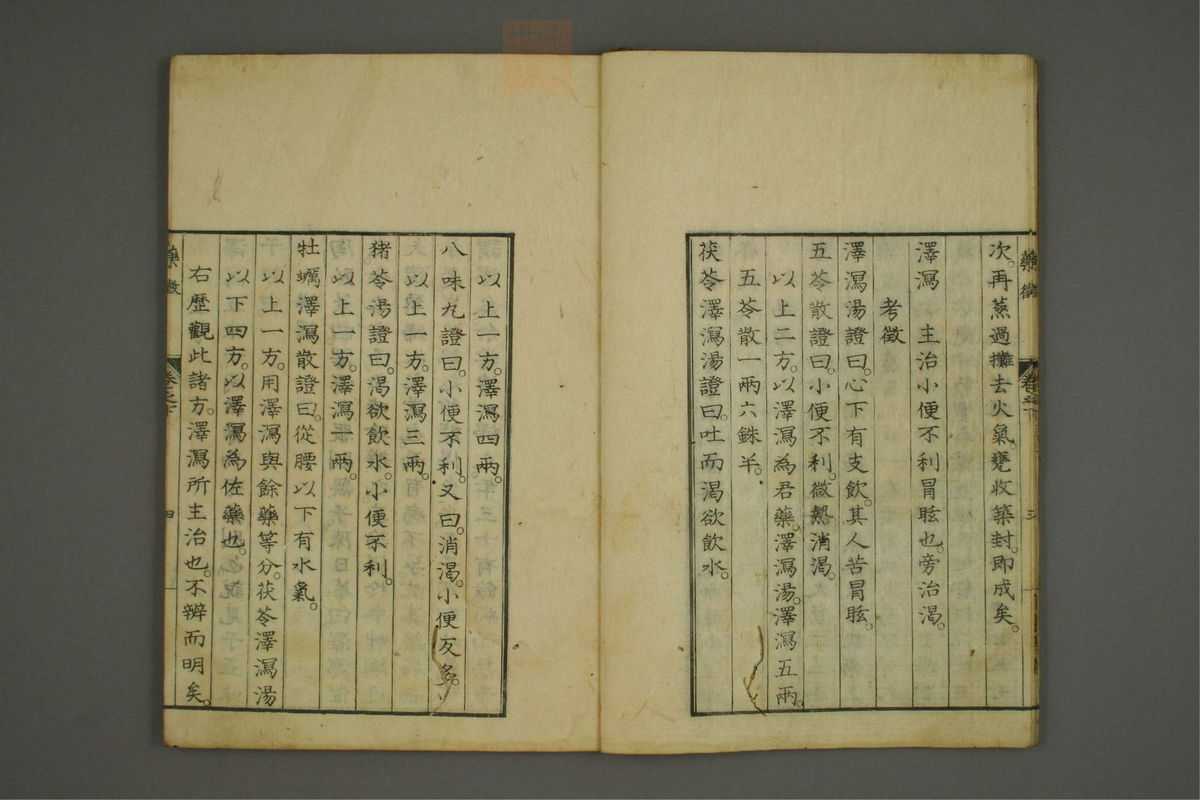 次。再蒸過攤去火氣。甕收築封。即成矣。
澤瀉　主治小便不利冒眩也。旁治渴。
考徵
澤瀉湯證曰。心下有支飲。其人苦冒眩。
五苓散證曰。小便不利。微熱消渴。
以上二方。以澤瀉為君藥。澤瀉湯。澤瀉五兩。
五苓散一兩六銖半。
茯苓澤瀉湯證曰。吐而渴欲飲水。
以上一方。澤瀉四兩。
八味丸證曰。小便不利。又曰。消渴。小便反多。
以上一方。澤瀉三兩。
猪苓湯證曰。渴欲飲水。小便不利。
以上一方。澤瀉一兩。
牡蠣澤瀉散證曰。從腰以下有水氣。
以上一方。用澤瀉與餘藥等分。茯苓澤瀉湯
以下四方。以澤瀉為佐藥也。
右歷觀此諸方。澤瀉所主治也。不辨而明矣。
藥徵
卷之下
四